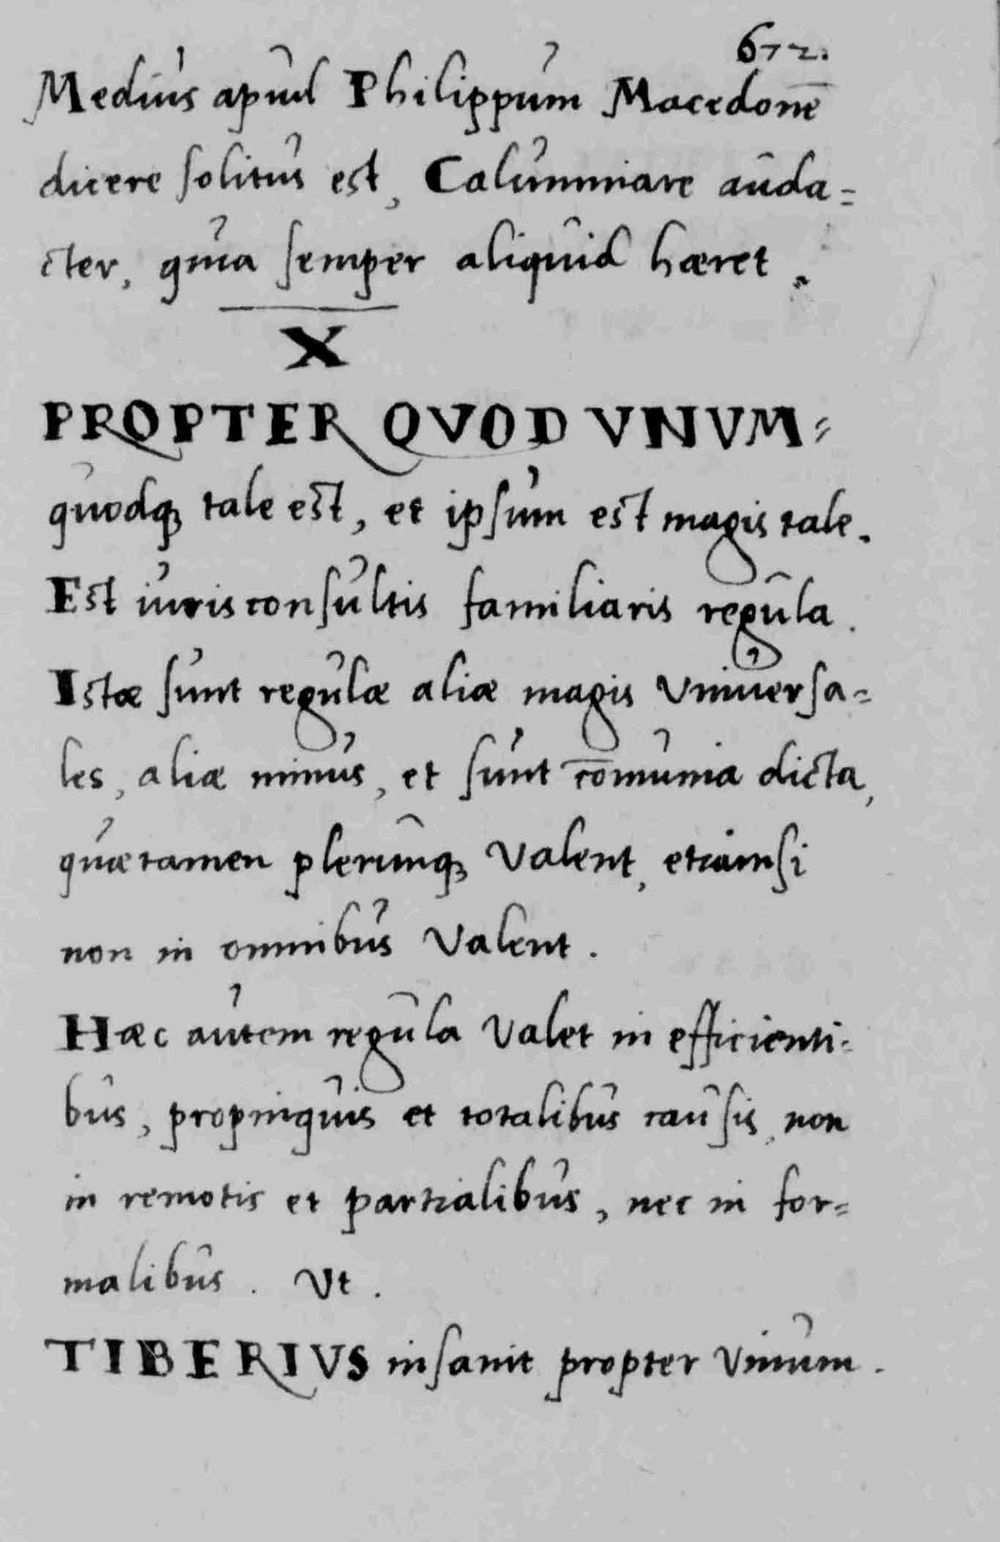 672.
Mediùs apùd Philippùm Macedonē
dicere solitùs est, Calùmniare aùda=
cter, qùia semper aliqùid hæret.
X
PROPTER QVOD VNVM=
qùodq; tale est, et ipsùm est magis tale.
Est iùrisconsùltis familiaris regùla.
Istæ sùnt regùlæ aliæ magis Vniùersa=
les, aliæ minùs, et sùnt cōmùnia dicta,
qùæ tamen plerùnq; Valent, etiamsi
non in omnibùs Valent.
Hæc aùtem regùla Valet in efficienti=
bùs, propinqùis et totalibùs caùsis, non
in remotis et partialibùs, nec in for=
malibùs. Vt.
TIBERIVS insanit propter Vinùm.